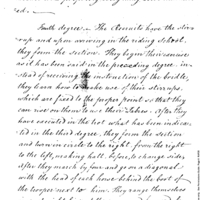 ed.
Tenth degree. The Recruits have the stir-
rups and upon arriving in the riding school,
they form the section. They begin their
as it has been said in the preceding degree, in-
stead of receiving the instruction of the bridle,
they learn how to make use of their stirrups,
which are fixed to the proper point so that they
can not use them to their . After they
have executed in the trot what has been indica-
ted in the third degree, they form the section
and turn on circle to the right from the right
to the left, making halt before, to change sides
after they march by four and go on a diagonal
with the head of each horse behind the boot of
the trooper next to him. They range themselves